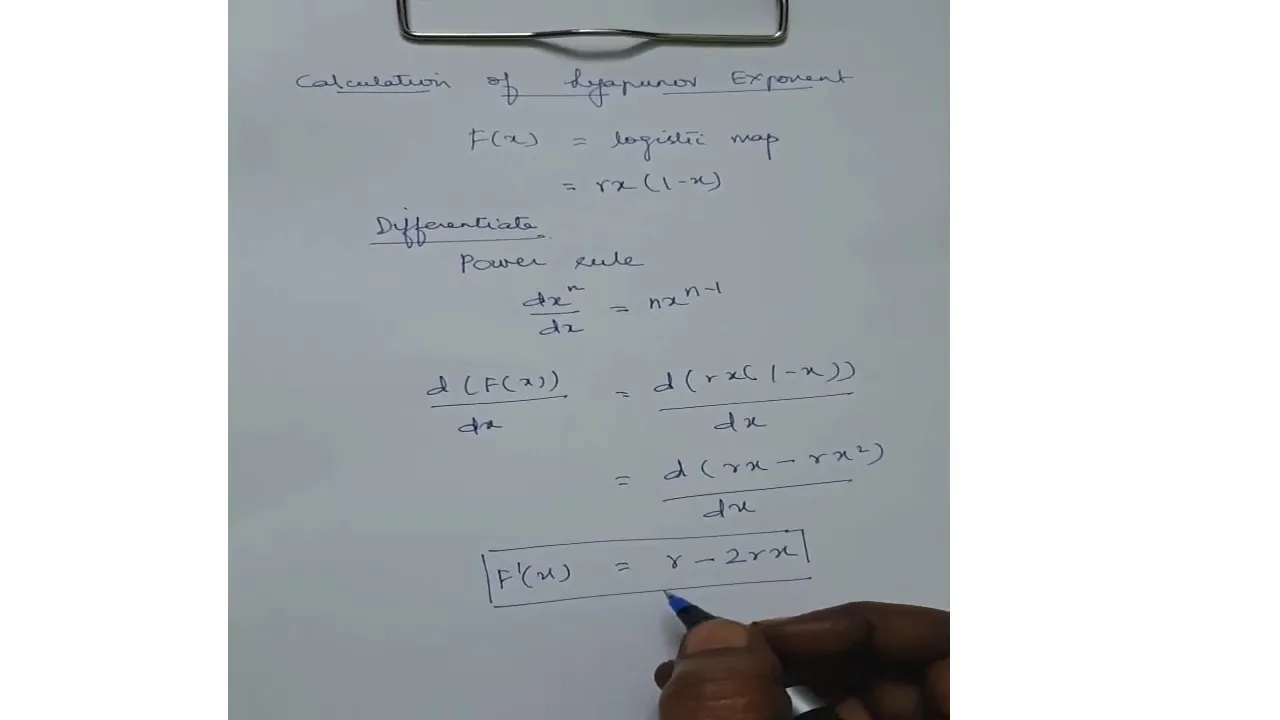 Calculation of Lyapunov Exponent
F(x) = logistic map
= rx(1-x)
Differentiate
Power rule
dx^n/dx = nx^{n-1}
d(F(x))/dx = d(rx(1-x))/dx
= d(rx - rx²)/dx
F'(x) = r - 2rx